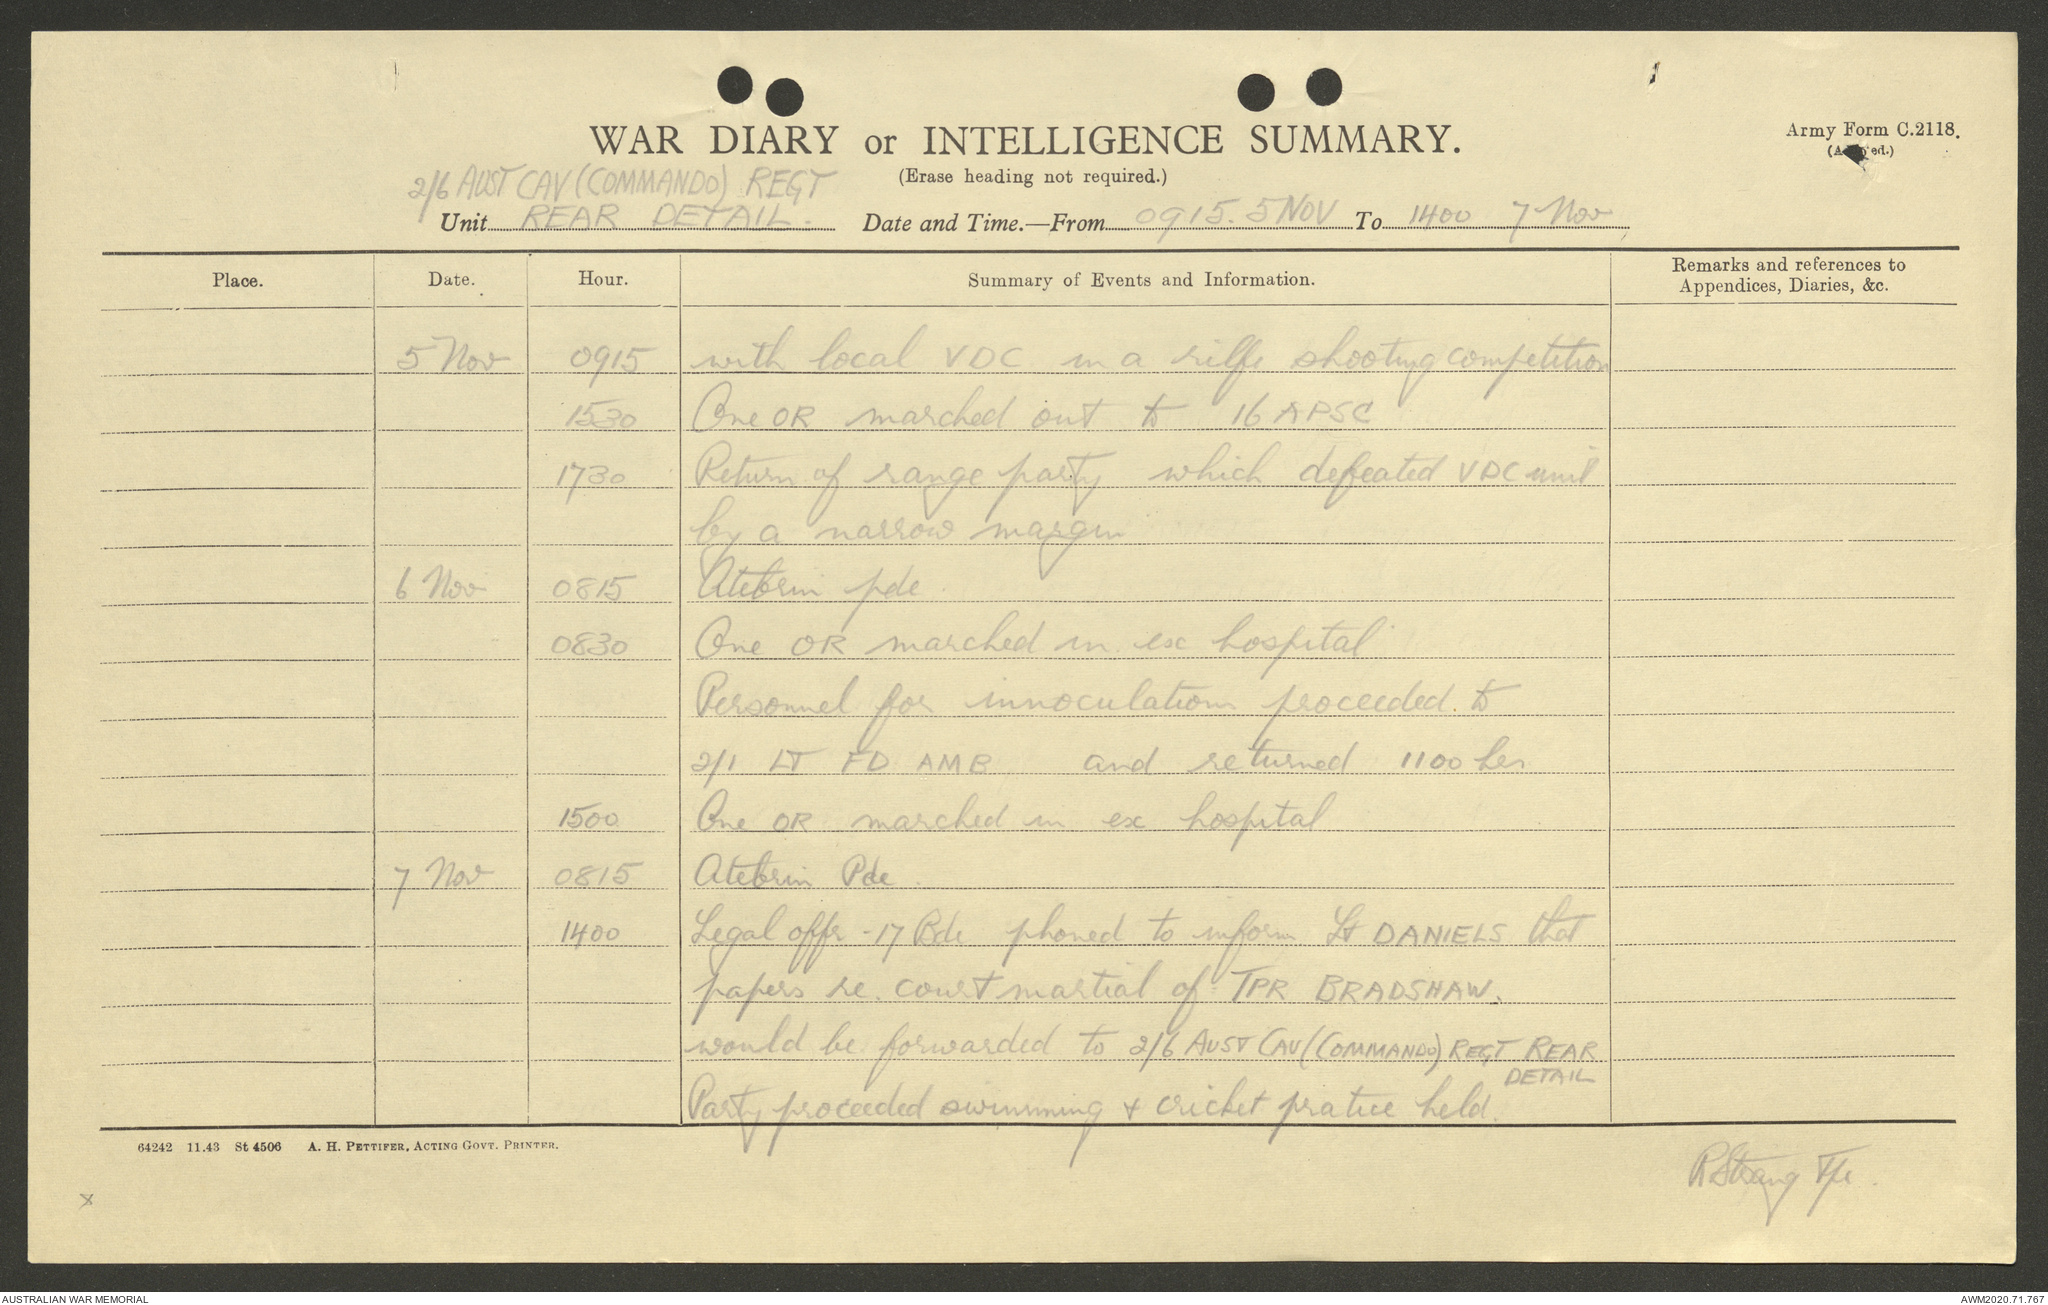 Army Form C.2118.
WAR DIARY or INTELLIGENCE SUMMARY.
(Erase heading not required.)
2/6 AUST CAV (COMMANDO) REGT
Unit REAR DETAIL. Date and Time.—From 0915. 5 NOV To 1400 7 Nov
Place. Date. Hour. Summary of Events and Information. Remarks and references to
Appendices, Diaries, &c.
5 Nov 0915 with local VDC in a rilfe shooting competition
1530 One OR marched out to 16 APSC
1730 Return of range party which defeated VDC unit
by a narrow margin
6 Nov 0815 Atebrin pde.
0830 One OR marched in ex hospital
Personnel for innoculations proceeded to
2/1 LT FD AMB and returned 1100 hrs
1500 One OR marched in ex hospital
7 Nov 0815 Atebrin Pde.
1400 Legal offr - 17 Bde phoned to inform Lt DANIELS that
papers re. court martial of TPR BRADSHAW.
would be forwarded to 2/6 AUST CAV (COMMANDO) REGT REAR
DETAIL
Party proceeded swimming & cricket pratice held.
64242 11.43 St 4506 A. H. PETTIFER, ACTING GOVT. PRINTER.
R Strang Tpr.
x
AUSTRALIAN WAR MEMORIAL AWM2020.71.767